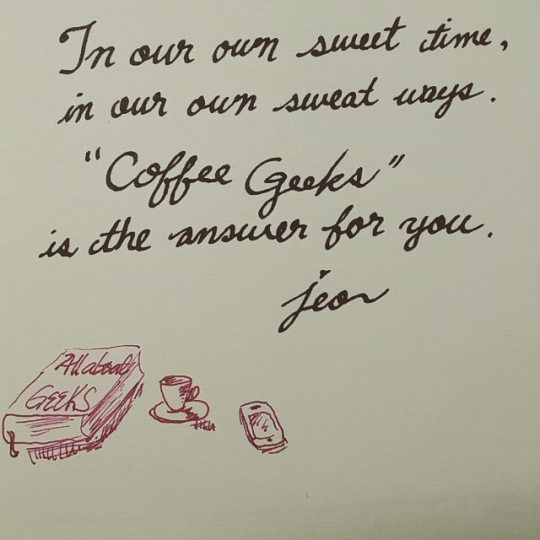 In our own sweet time,
in our own sweat ways.
"Coffee Geeks"
is the answer for you.
jeon
All about
GEEKS